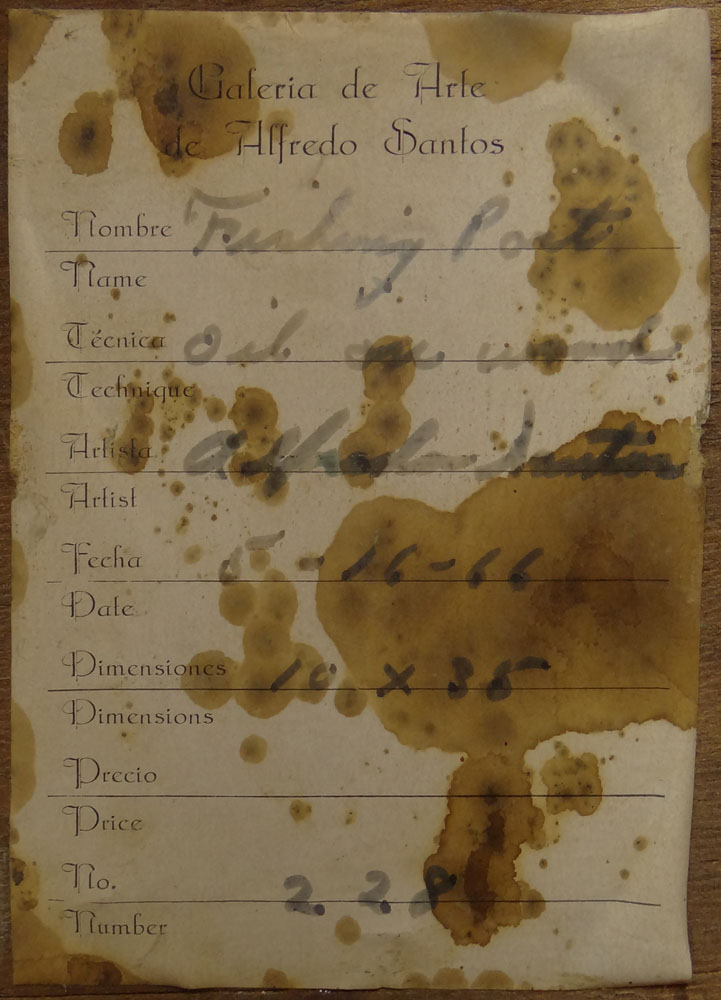 Galeria de Arte
de Alfredo Santos
Nombre Fishing Port
Name
Técnica oil on wood
Technique
Artista Alfredo Santos
Artist
Fecha 5-16-66
Date
Dimensiones 10 x 35
Dimensions
Precio
Price
No. 228
Number